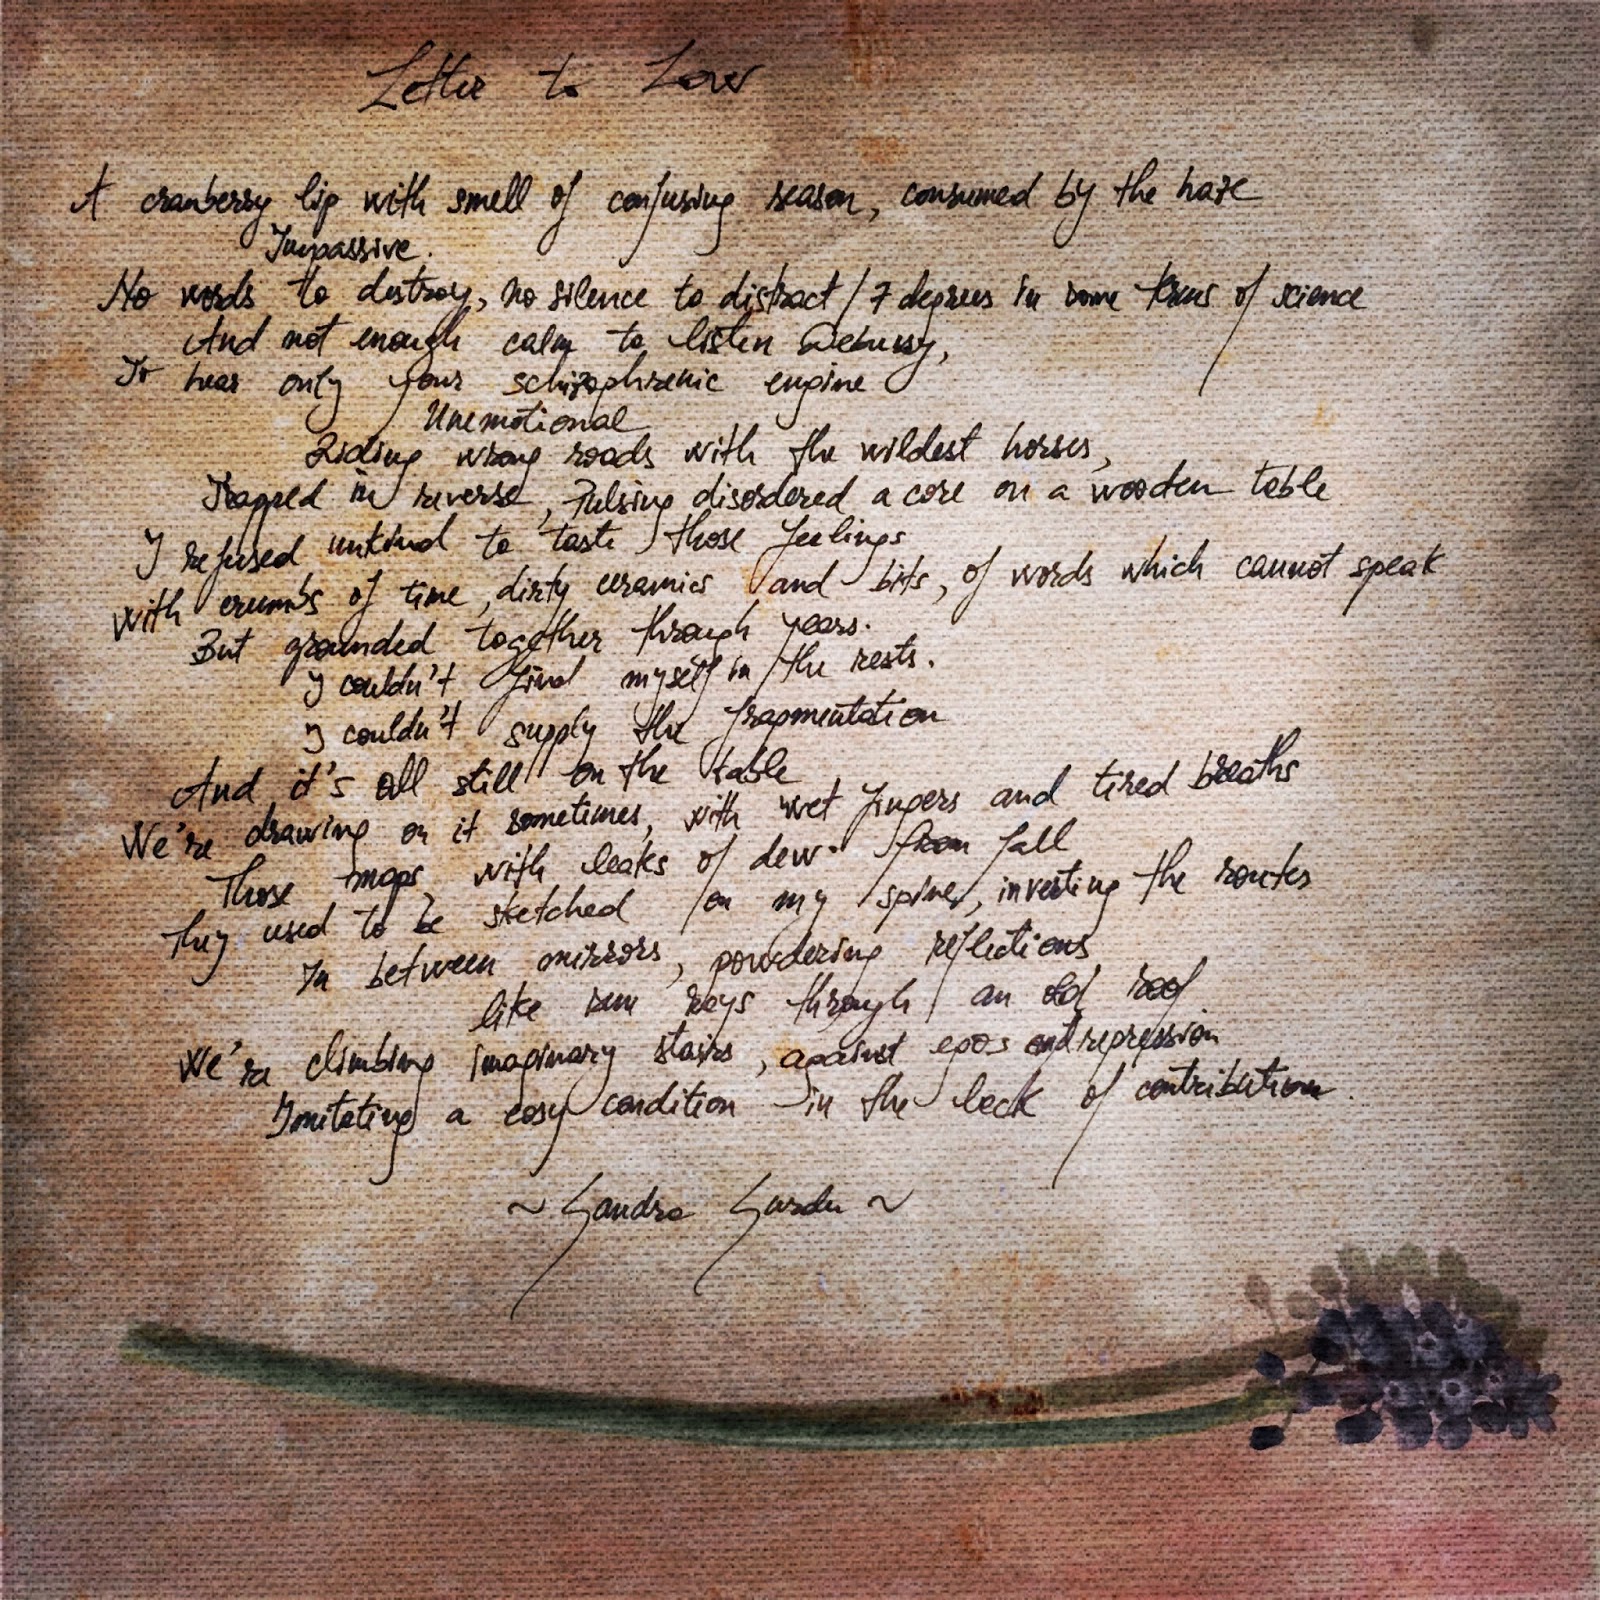 Letter to Love
A cranberry lip with smell of confusing season, consumed by the haze
Impassive.
No words to destroy, no silence to distract / 7 degrees in some terms of science
And not enough calm to listen Debussy,
To hear only your schizophrenic engine
Unemotional
Riding wrong roads with the wildest horses,
Trapped in reverse, Pulsing disordered a core on a wooden table
I refused unkind to taste those feelings
With crumbs of time, dirty ceramics and bits, of words which cannot speak
But grounded together through years.
I couldn't find myself in the rests.
I couldn't supply the fragmentation
And it's all still on the table
We're drawing on it sometimes, with wet fingers and tired breaths
Those maps, with leaks of dew from fall
They used to be sketched on my spine, inverting the routes
In between mirrors, powdering reflections
like rays through an old roof
We're climbing imaginary stairs, against egos and repression
Imitating a cosy condition in the lack of contribution.
~ Sandra ~